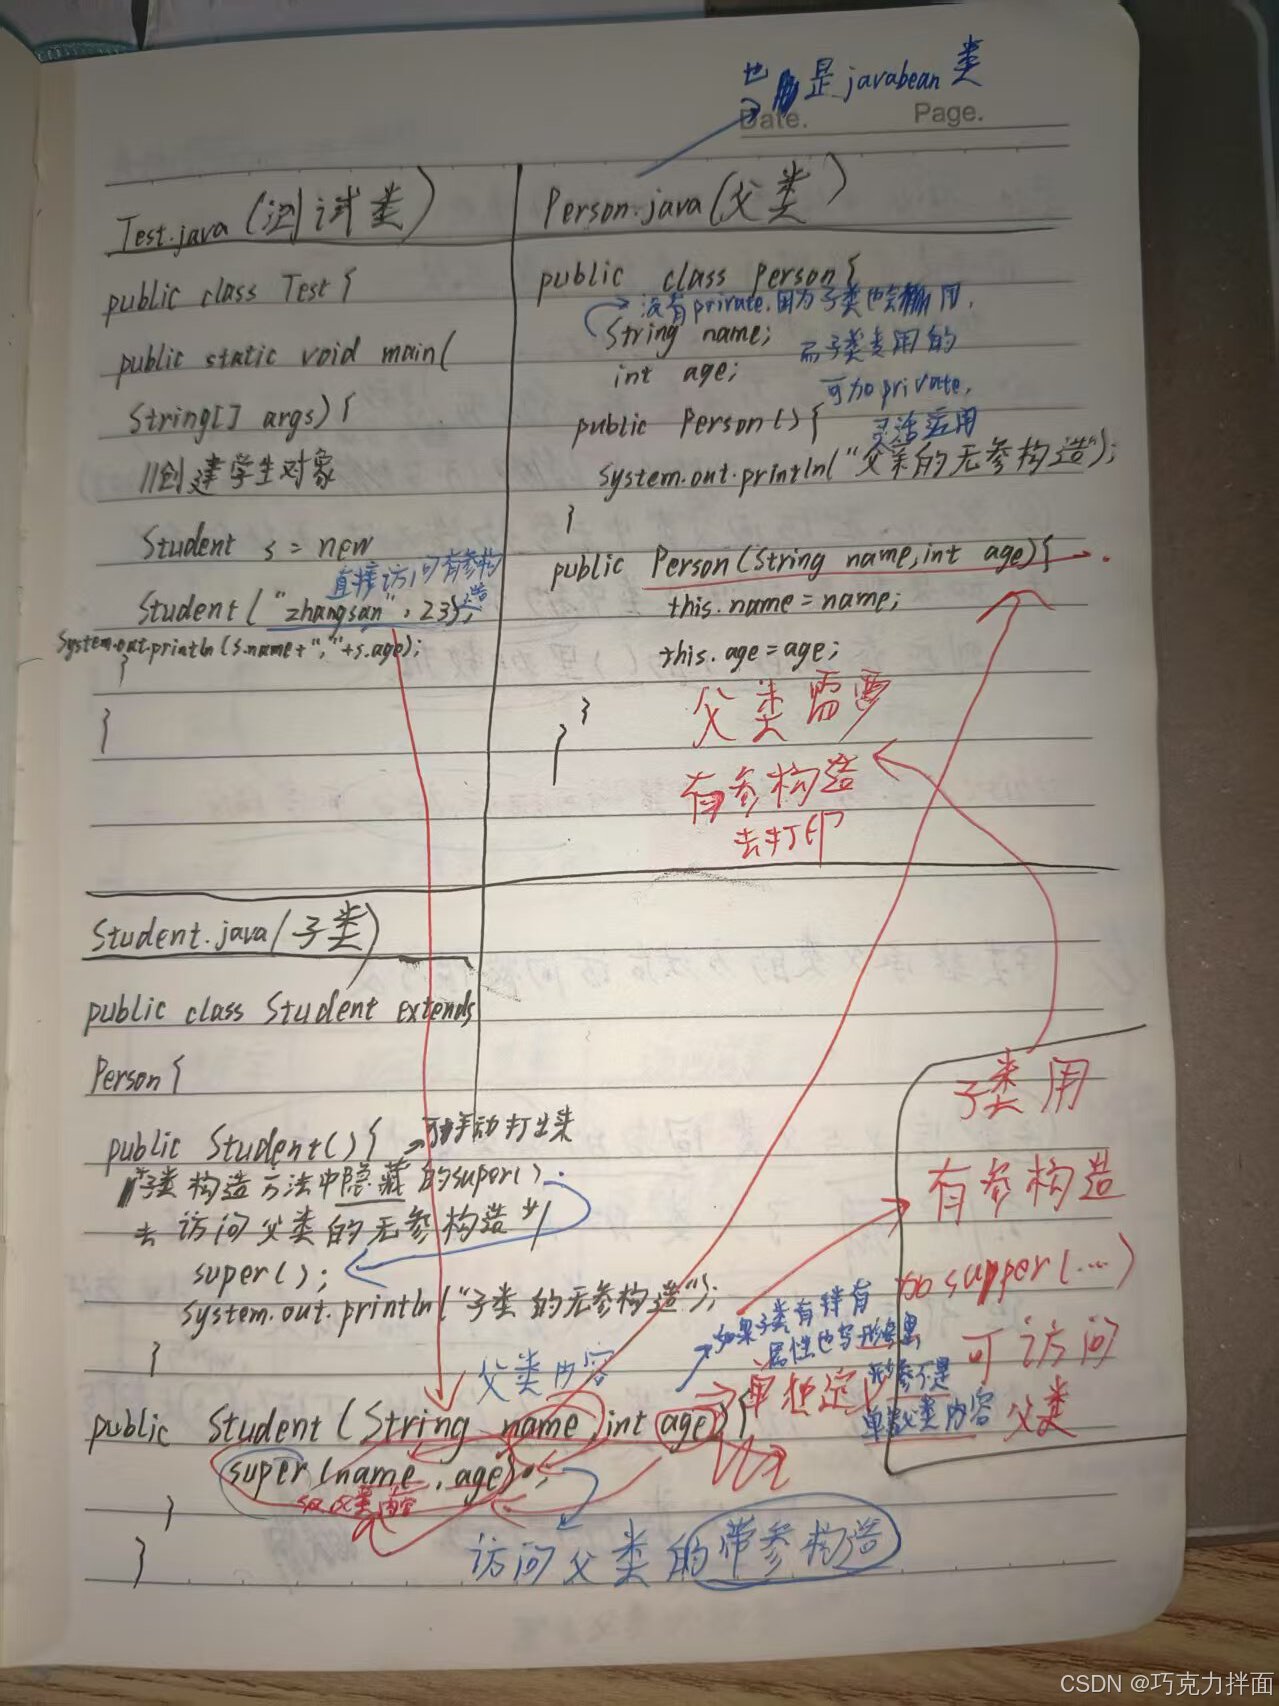 也是javabean类
Date.
Page.
Test.java(测试类)
public class Test {
public static void main(
String[] args) {
//创建学生对象
Student s = new
直接访问有参构造
Student("zhangsan", 23);
System.out.println(s.name+","+s.age);
}
}
Person.java(父类)
public class Person {
没有private,因为子类也会用,
String name;
而子类专用的
int age;
可加private,
灵活运用
public Person() {
System.out.println("父类的无参构造");
}
public Person(String name, int age) {
this.name = name;
this.age = age;
}
}
父类需要
有参构造
去打印
Student.java(子类)
public class Student extends
Person {
public Student() {
手动打出来
子类构造方法中隐藏的super()
去访问父类的无参构造*/
super();
System.out.println("子类的无参构造");
}
父类内容
public Student(String name, int age) {
super(name, age);
}
}
访问父类的带参构造
如果子类有特有
属性也写形参里,
形参不是
单父类内容
单独定
子类用
有参构造
supper(...)
可访问
父类
CSDN @巧克力拌面